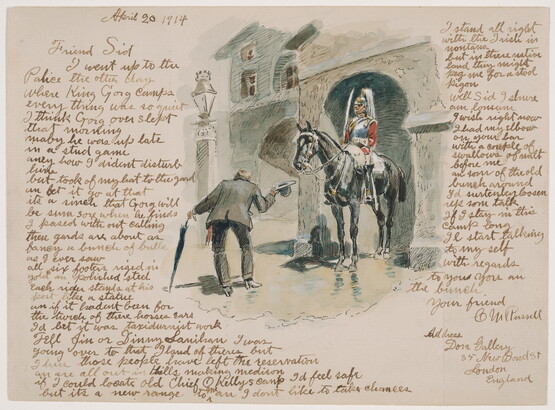 April 20 1914
Friend Sid
I went up to the
Palice the other day
where King Gorg camps
every thing was so quiet
I think Gorg over slept
that morning
maby he was up late
in a stud game
aney how I dident disturb
him
but took of my hat to the gard
an let it go at that
its a sinch that Gorg will
be sure sore when he finds
I passed with out calling
these gards are about as
fancy a bunch of bulls
as I ever saw
all six footers riged in
gold an polished steel
each rider stands at his
post like a statue
an if it hadent been for
the twich of there horses ears
Id bet it was taxidurmist work
Tell Jim or Jimmy I was
going over to that Iland of theres but
I hear those people have left the reservation
an are all out in hills making medison
if I could locate old Chief O Kellys camp Id feel safe
but its a new range to me an I dont like to take chances
I stand all right
with the Irish in
montana
but in there native
land they might
peg me for a stool
pigon
Well Sid I shure
am lonsum
I wish right now
I had my elbow
on your bar
with a couple of
swallows of
before me
an som of the old
bunch around
Id surtenly loosen
up som talk
if I stay in this
camp long
Il start talking
to my self
with regards
to you yors an
the bunch
Your friend
C M Russell
Address
Dore Gallery
35 New Bond St
London
England